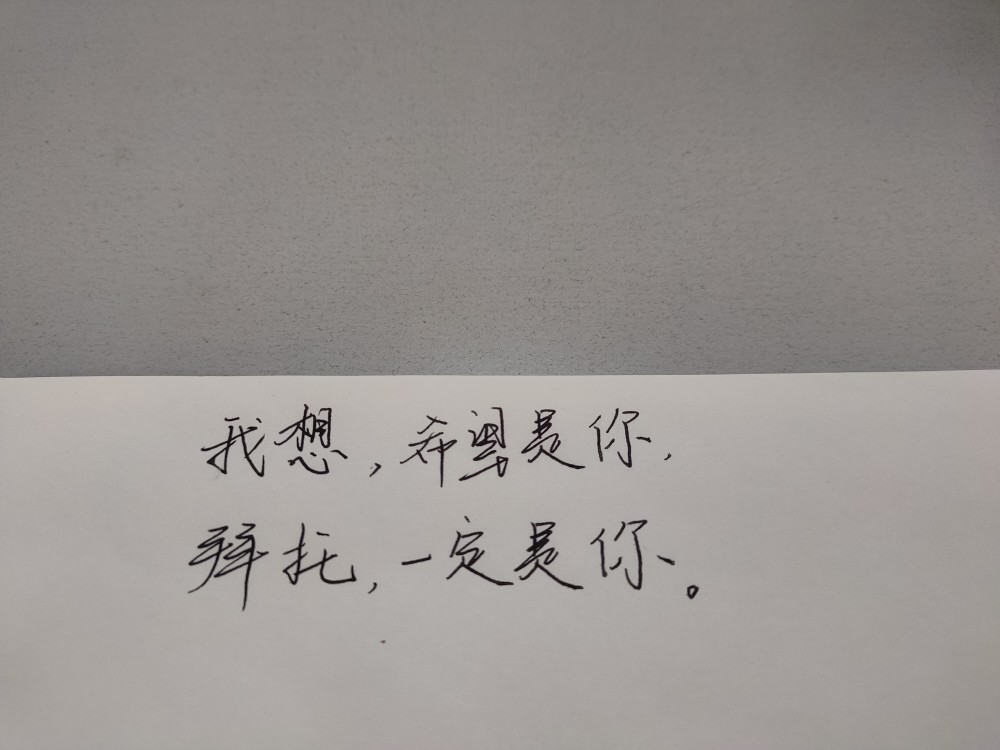 我想，希望是你，
拜托，一定是你。